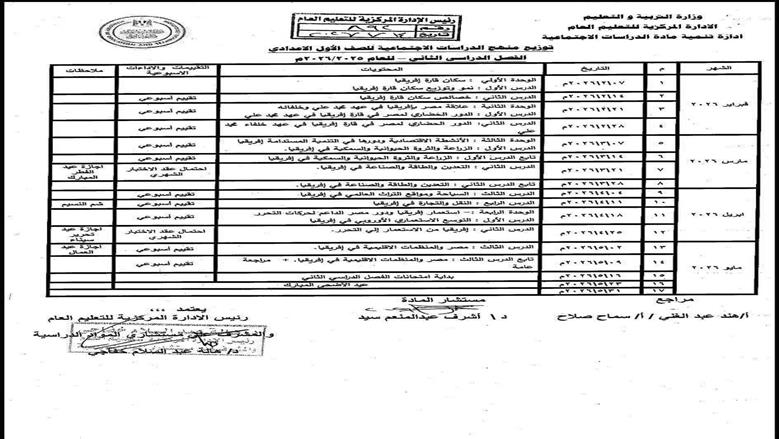 وزارة التربية و التعليم
الادارة المركزية للتعليم العام
ادارة تنمية مادة الدراسات الاجتماعية
رئيس الإدارة المركزية للتعليم العام
رقم
تاريخ
توزيع منهج الدراسات الاجتماعية للصف الأول الاعدادي
الفصل الدراسى الثانى – للعام ٢٠٢٦/٢٠٢٥م
الشهر م التاريخ المحتويات التقييمات والأداءات الاسبوعية ملاحظات
فبراير ٢٠٢٦
١ ٢٠٢٦/٢/٠٧م الوحدة الأولي : سكان قارة إفريقيا
الدرس الأول : نمو وتوزيع سكان قارة إفريقيا
٢ ٢٠٢٦/٢/١٤م الدرس الثاني : خصائص سكان قارة إفريقيا تقييم أسبوعي
٣ ٢٠٢٦/٢/٢١م الوحدة الثانية : علاقة مصر بإفريقيا في عهد محمد علي وخلفائه
الدرس الأول : الدور الحضاري لمصر في قارة إفريقيا في عهد محمد علي تقييم أسبوعي
٤ ٢٠٢٦/٢/٢٨م الدرس الثاني: الدور الحضاري لمصر في قارة إفريقيا في عهد خلفاء محمد علي تقييم أسبوعي
مارس ٢٠٢٦
٥ ٢٠٢٦/٣/٠٧م الوحدة الثالثة : الأنشطة الاقتصادية ودورها في التنمية المستدامة إفريقيا
الدرس الأول : الزراعة والثروة الحيوانية والسمكية في إفريقيا تقييم أسبوعي
٦ ٢٠٢٦/٣/١٤م تابع الدرس الأول : الزراعة والثروة الحيوانية والسمكية في إفريقيا تقييم أسبوعي
٧ ٢٠٢٦/٣/٢١م الدرس الثاني : التعدين والطاقة والصناعة في إفريقيا. احتمال عقد الاختبار الشهري اجازة عيد الفطر المبارك
٨ ٢٠٢٦/٣/٢٨م تابع الدرس الثاني : التعدين والطاقة والصناعة في إفريقيا تقييم أسبوعي
ابريل ٢٠٢٦
٩ ٢٠٢٦/٤/٠٤م الدرس الثالث : السياحة ومواقع التراث العالمي في إفريقيا تقييم أسبوعي
١٠ ٢٠٢٦/٤/١١م الدرس الرابع : النقل والتجارة في إفريقيا تقييم أسبوعي شم النسيم
١١ ٢٠٢٦/٤/١٨م الوحدة الرابعة :- استعمار إفريقيا ودور مصر الداعم لحركات التحرر
الدرس الأول : التوسع الاستعماري الأوروبي في إفريقيا تقييم أسبوعي
١٢ ٢٠٢٦/٤/٢٥م الدرس الثاني: إفريقيا من الاستعمار إلي التحرر. احتمال عقد الاختبار الشهري اجازة عيد تحرير سيناء
مايو ٢٠٢٦
١٣ ٢٠٢٦/٥/٠٢م الدرس الثالث : مصر والمنظمات الاقليمية في إفريقيا. تقييم أسبوعي اجازة عيد العمال
١٤ ٢٠٢٦/٥/٠٩م تابع الدرس الثالث : مصر والمنظمات الإقليمية في إفريقيا. + مراجعة عامة تقييم أسبوعي
١٥ ٢٠٢٦/٥/١٦م بداية امتحانات الفصل الدراسي الثاني
١٦ ٢٠٢٦/٥/٢٣م عيد الأضحى المبارك
١٧ ٢٠٢٦/٥/٣١م
مراجع مستشار المادة يعتمد ...
أ/هند عبد الغنى / أ/ سماح صلاح د ا أشرف عبدالمنعم سيد رئيس الإدارة المركزية للتعليم العام
والمشرف على مستشاري المواد الدراسية
د/ هالة عبد السلام خفاجي